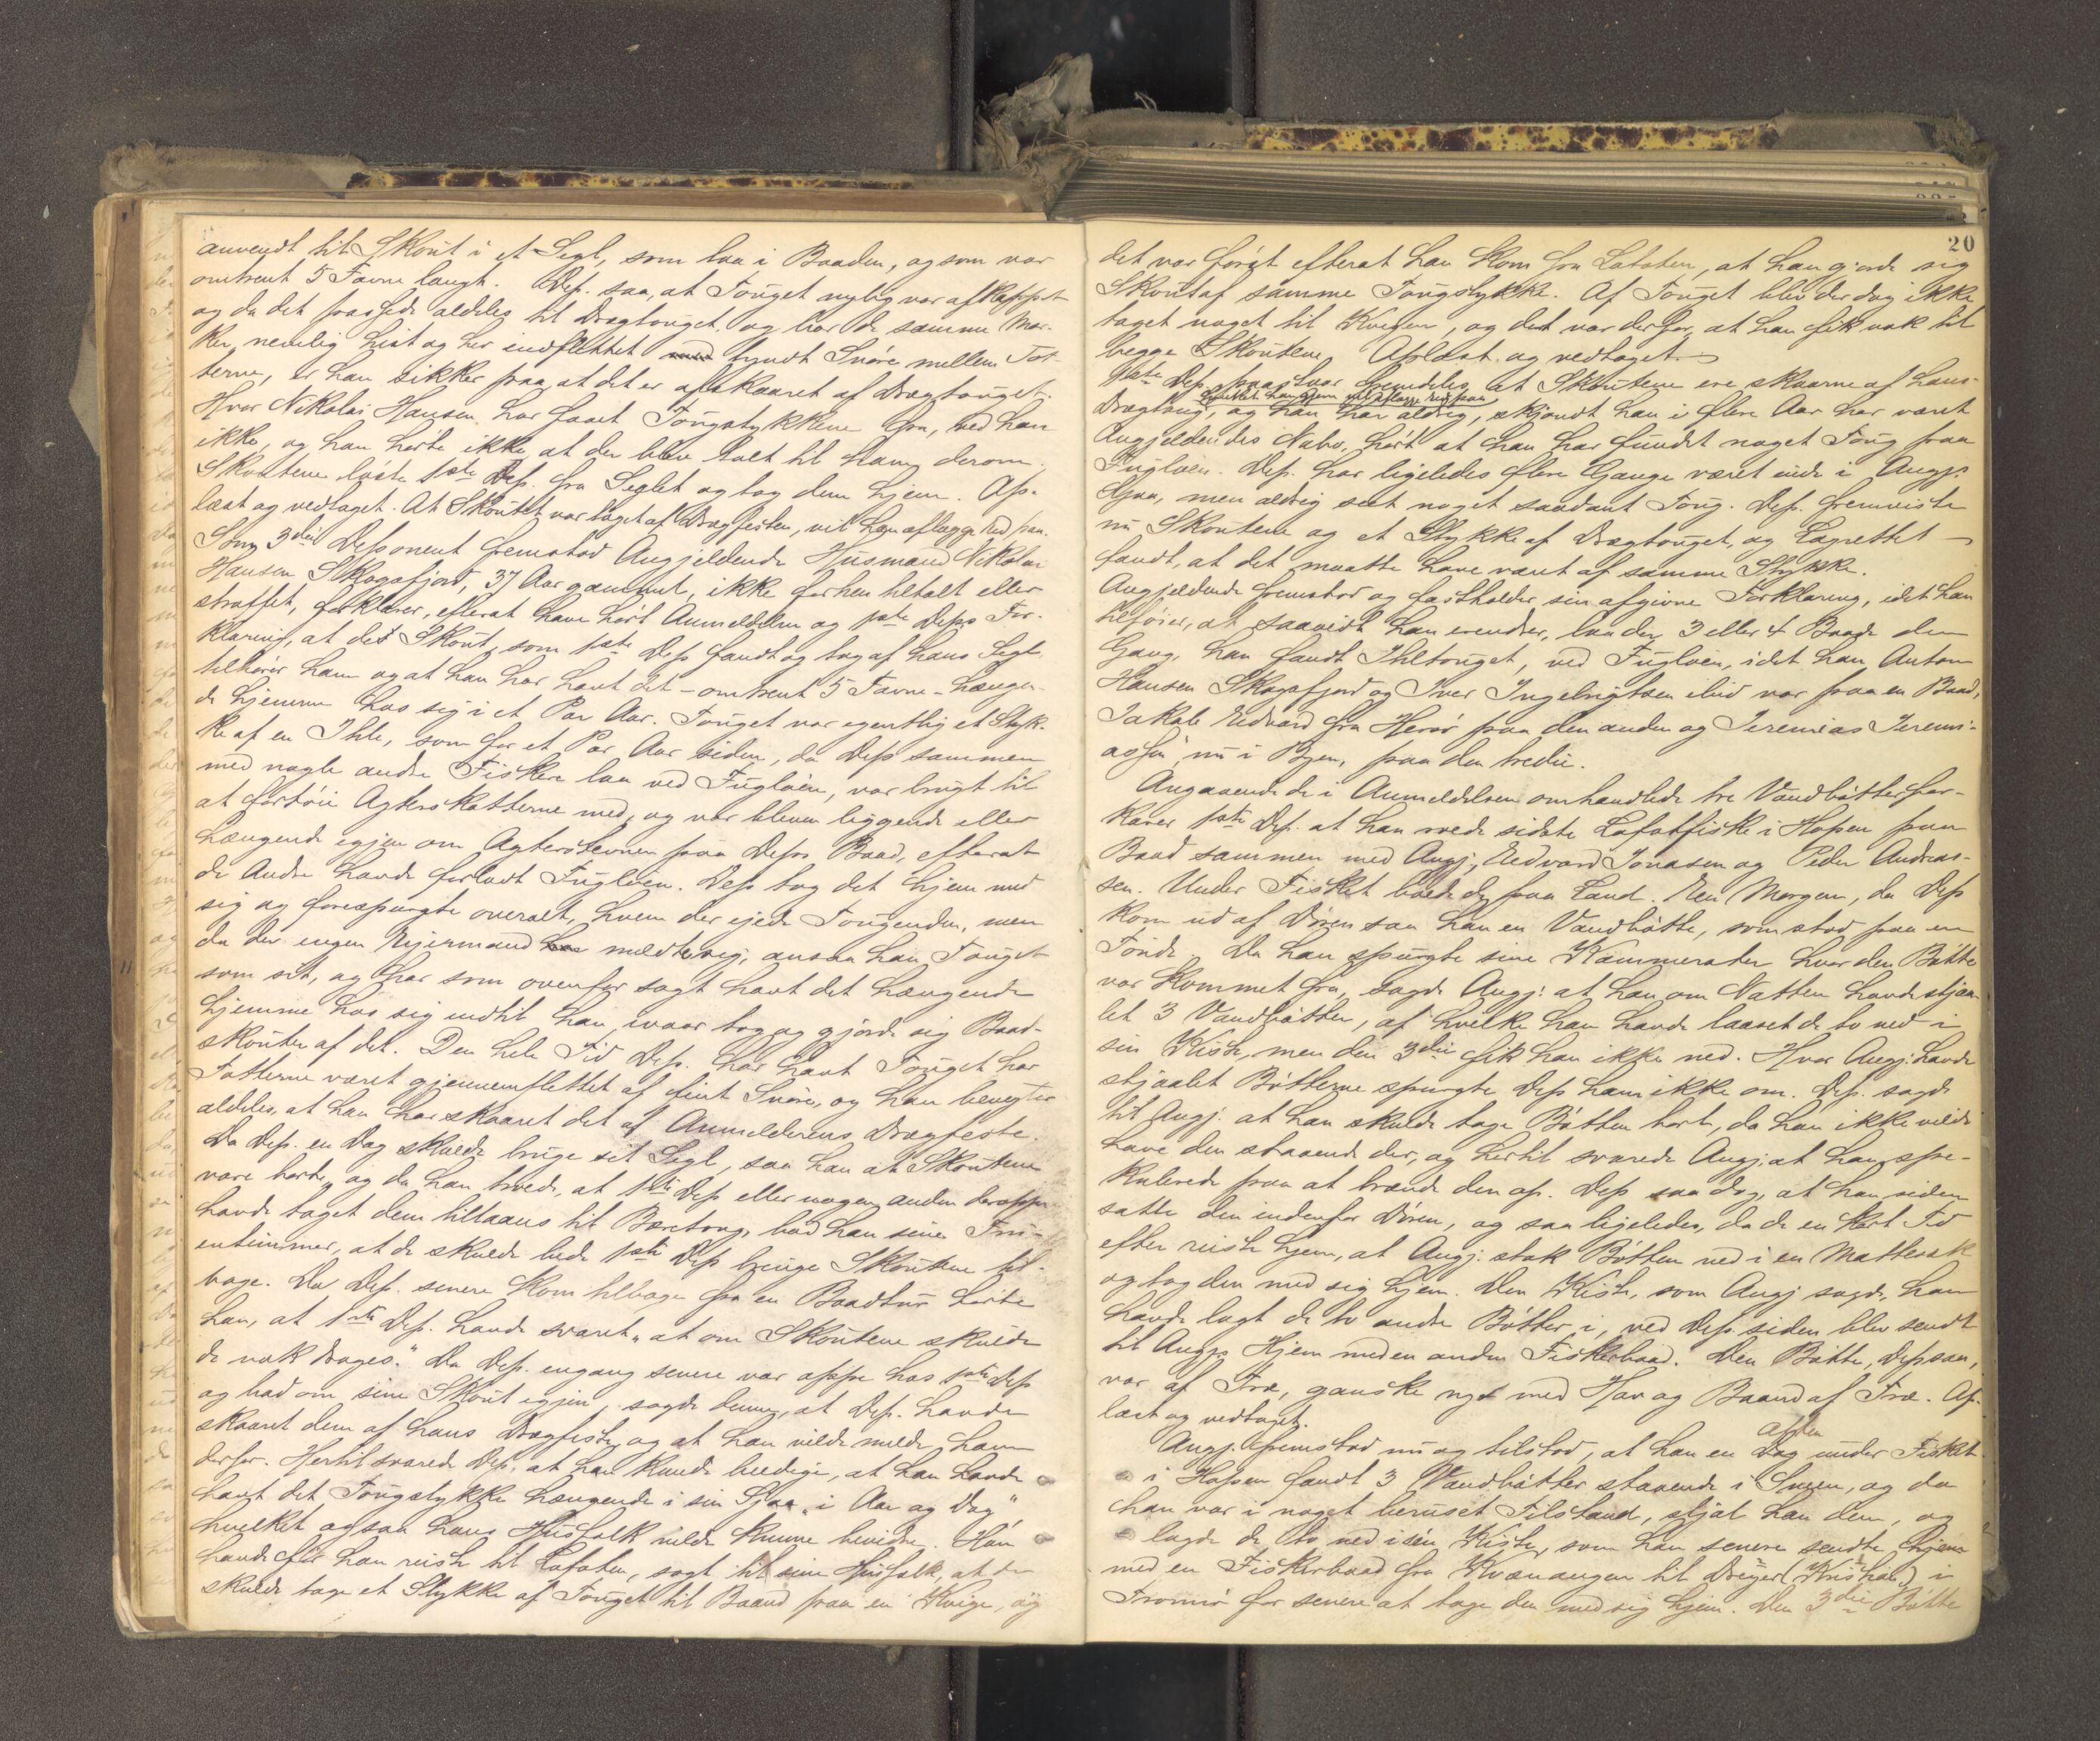 anvendt til Skout i et Segl, som laa i Baaden, og som var
omtrent 5 Favne langt. Dep. saa, at Touget nylig var afkappet
og da det passede aldeles til Dragtouget, og har de samme Mær-
ker, nemlig hist og her indflettet med tyndt Snøre mellem Tot-
terne, er han sikker paa, at det er afskaaret af Dragtouget.
Hvor Nikolai Hansen har faaet Tougstykkene fra, ved han
ikke, og han hørte ikke at der blev talt til ham derom,
Skoutene løste 1ste Dep. fra Seglet og tog dem hjem. Op-
læst og vedtaget. At Skoutet var taget af Dragfesten, vil han aflægge Ed paa.
Som 3die Deponent fremstod Angjeldende Husmand Nikolai
Hansen Skogsfjord, 37 Aar gammel, ikke forhen tiltalt eller
straffet, forklarer, efterat have hørt Anmeldelsen og 1ste Deps For-
klaring, at det Skout, som 1ste Dep fandt og tog af hans Segl
tilhører ham og at han har havt det - omtrent 5 Favne - hængen-
de hjemme hos sig i et Par Aar. Touget var egentlig et Styk-
ke af en Ihle, som for et Par Aar siden, da Dep sammen
med nogle andre Fiskere laa ved Fugløen, var brugt til
at fortøie Agterskotterne med, og var bleven liggende eller
hængende igjen om Agterstevnen paa Deps Baad, efterat
de Andre havde forladt Fugløen. Dep tog det hjem med
sig og forespurgte overalt, hvem der ejede Tougenden, men
da der ingen Eiermand har meldte sig, ansaa han Touget
som sit, og har som ovenfor sagt havt det hængende
hjemme hos sig indtil han ivaar tog og gjorde sig Baad-
skouter af det. Den hele Tid Dep. har havt Touget har
Totterne været gjennemflettet af fint Snøre, og han benegter
aldeles, at han har skaaret det af Anmelderens Dragfeste.
Da Dep. en Dag skulde bruge sit Segl, saa han at Skoutene
vare borte, og da han troede, at 1ste Dep eller nogen anden deroppe
havde taget dem tillaans til Bæretoug, bad han sine Fru-
entimmer, at de skulde bede 1ste Dep bringe Skoutene til-
bage. Da Dep. senere kom tilbage fra en Baadtur hørte
han, at 1ste Dep. havde svaret "at om Skoutene skulde
de nok drages." Da Dep. engang senere var oppe hos 1ste Dep
og bad om sine Skout igjen, sagde denne, at Dep. havde
skaaret dem af hans Dragfeste og at han vilde melde ham
derfor. Hertil svarede Dep. at han kunde beedige, at han havde
havt det Tougstykke hængende i sin Sjaa "i Aar og Dag"
hvilket ogsaa hans Husfolk vilde kunne bevidne. Han
havde før han reiste til Lofoten, sagt til sine Husfolk, at de
skulde tage et Stykke af Touget til Baand paa en Kvige, og
20
det var først efterat han kom fra Lofoten, at han gjorde sig
Skout af samme Tougstykke. Af Touget blev der dog ikke
taget noget til Kvigen, og det var derfor, at han fik nok til
begge Skoutene. Oplæst og vedtaget.
1ste Dep. paastaar fremdeles at Skoutene ere skaarne af hans
hvilket han igjen vil aflægge Ed paa,
Dragtoug, og han har aldrig, skjøndt han i flere Aar har været
Angjeldendes Nabo, hørt at han har fundet noget Toug paa
Fugløen. Dep. har ligeledes flere Gange været inde i Angjs
Sjaa, men aldrig seet noget saadant Toug. Dep. fremviste
nu Skoutene og et Stykke af Dragtouget, og Lagrettet
fandt, at det maatte have været af samme Stykke.
Angjeldende fremstod og fastholder sin afgivne Forklaring, idet han
tilføier, at saavidt han erindrer, laa der 3 eller 4 Baade den
Gang, han fandt Ihletouget, ved Fugløen, idet han, Anton
Hansen Skogsfjord og Iver Ingebrigtsen ibid var paa en Baad,
Jakob Edvard fra Herø paa den anden og Jeremias Jeremi-
assen, nu i Byen, paa den tredie.
Angaaende de i Anmeldelsen omhandlede tre Vandbøtter for-
klarer 1ste Dep. at han roede sidste Lofotfiske i Hopen paa
Baad sammen med Angj., Edvard Jonasen og Peder Andreas-
sen. Under Fisket boede de paa Land. En Morgen, da Dep
kom ud af Døren saa han en Vandbøtte, som stod paa en
Tønde. Da han spurgte sine Kammerater hvor den Bøtte
var kommet fra, sagde Angj. at han om Natten havde stjaa-
let 3 Vandbøtter, af hvilke han havde laaset de to ned i
sin Kiste, men den 3die fik han ikke ned. Hvor Angj. havde
stjaalet Bøtterne spurgte Dep ham ikke om. Dep. sagde
til Angj. at han skulde tage Bøtten bort, da han ikke vilde
have den staaende der, og hertil svarede Angj. at han spe-
kulerede paa at brænde den op. Dep saa dog, at han siden
satte den indenfor Døren, og saa ligeledes, da de en kort Tid
efter reiste hjem, at Angj. stak Bøtten ned i en Mattesæk
og tog den med sig hjem. Den Kiste, som Angj sagde, han
havde lagt de to andre Bøtter i, ved Dep. siden blev sendt
til Angjs Hjem med en anden Fiskerbaad. Den Bøtte, Dep saa,
var af Træ, ganske nye med Hav og Baand af Træ. Op-
læst og vedtaget.
Aften
Angj. fremstod nu og tilstod, at han en Dag under Fisket
i Hopen fandt 3 Vandbøtter staaende i Sneen, og da
han var i noget beruset Tilstand, stjal han dem, og
lagde de to ned i sin Kiste, som han senere sendte hjem
med en Fiskerbaad fra Kvænangen til Dreyer (Krishav) i
Tromsø for senere at tage den med sig hjem. Den 3die Bøtte